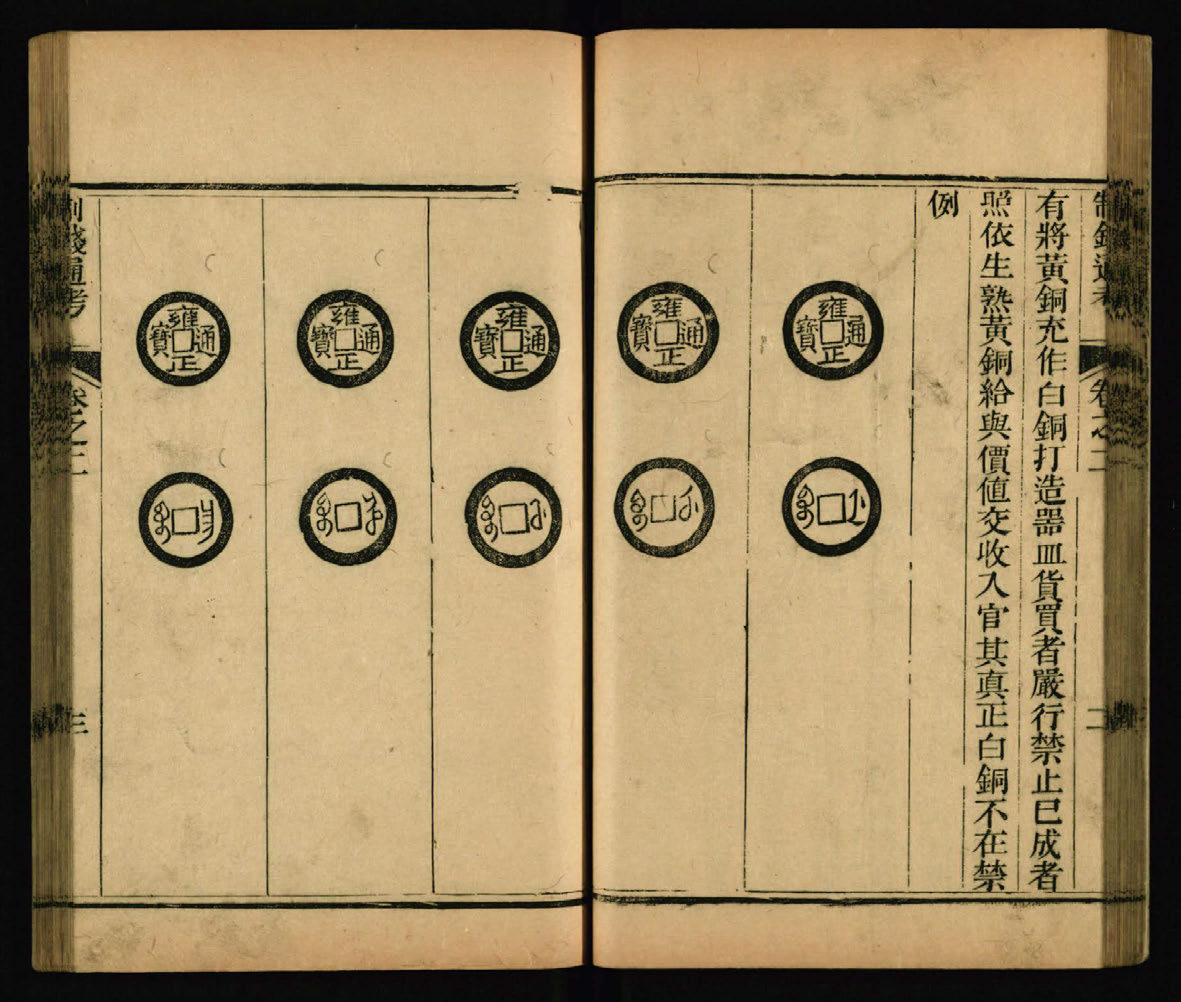 制錢通考
卷之二
二
有將黃銅充作白銅打造器皿貨買者嚴行禁止已成者
照依生熟黃銅給與價值交收入官其真正白銅不在禁
例
雍正通寶
雍正通寶
雍正通寶
雍正通寶
雍正通寶
制錢通考
卷之二
三